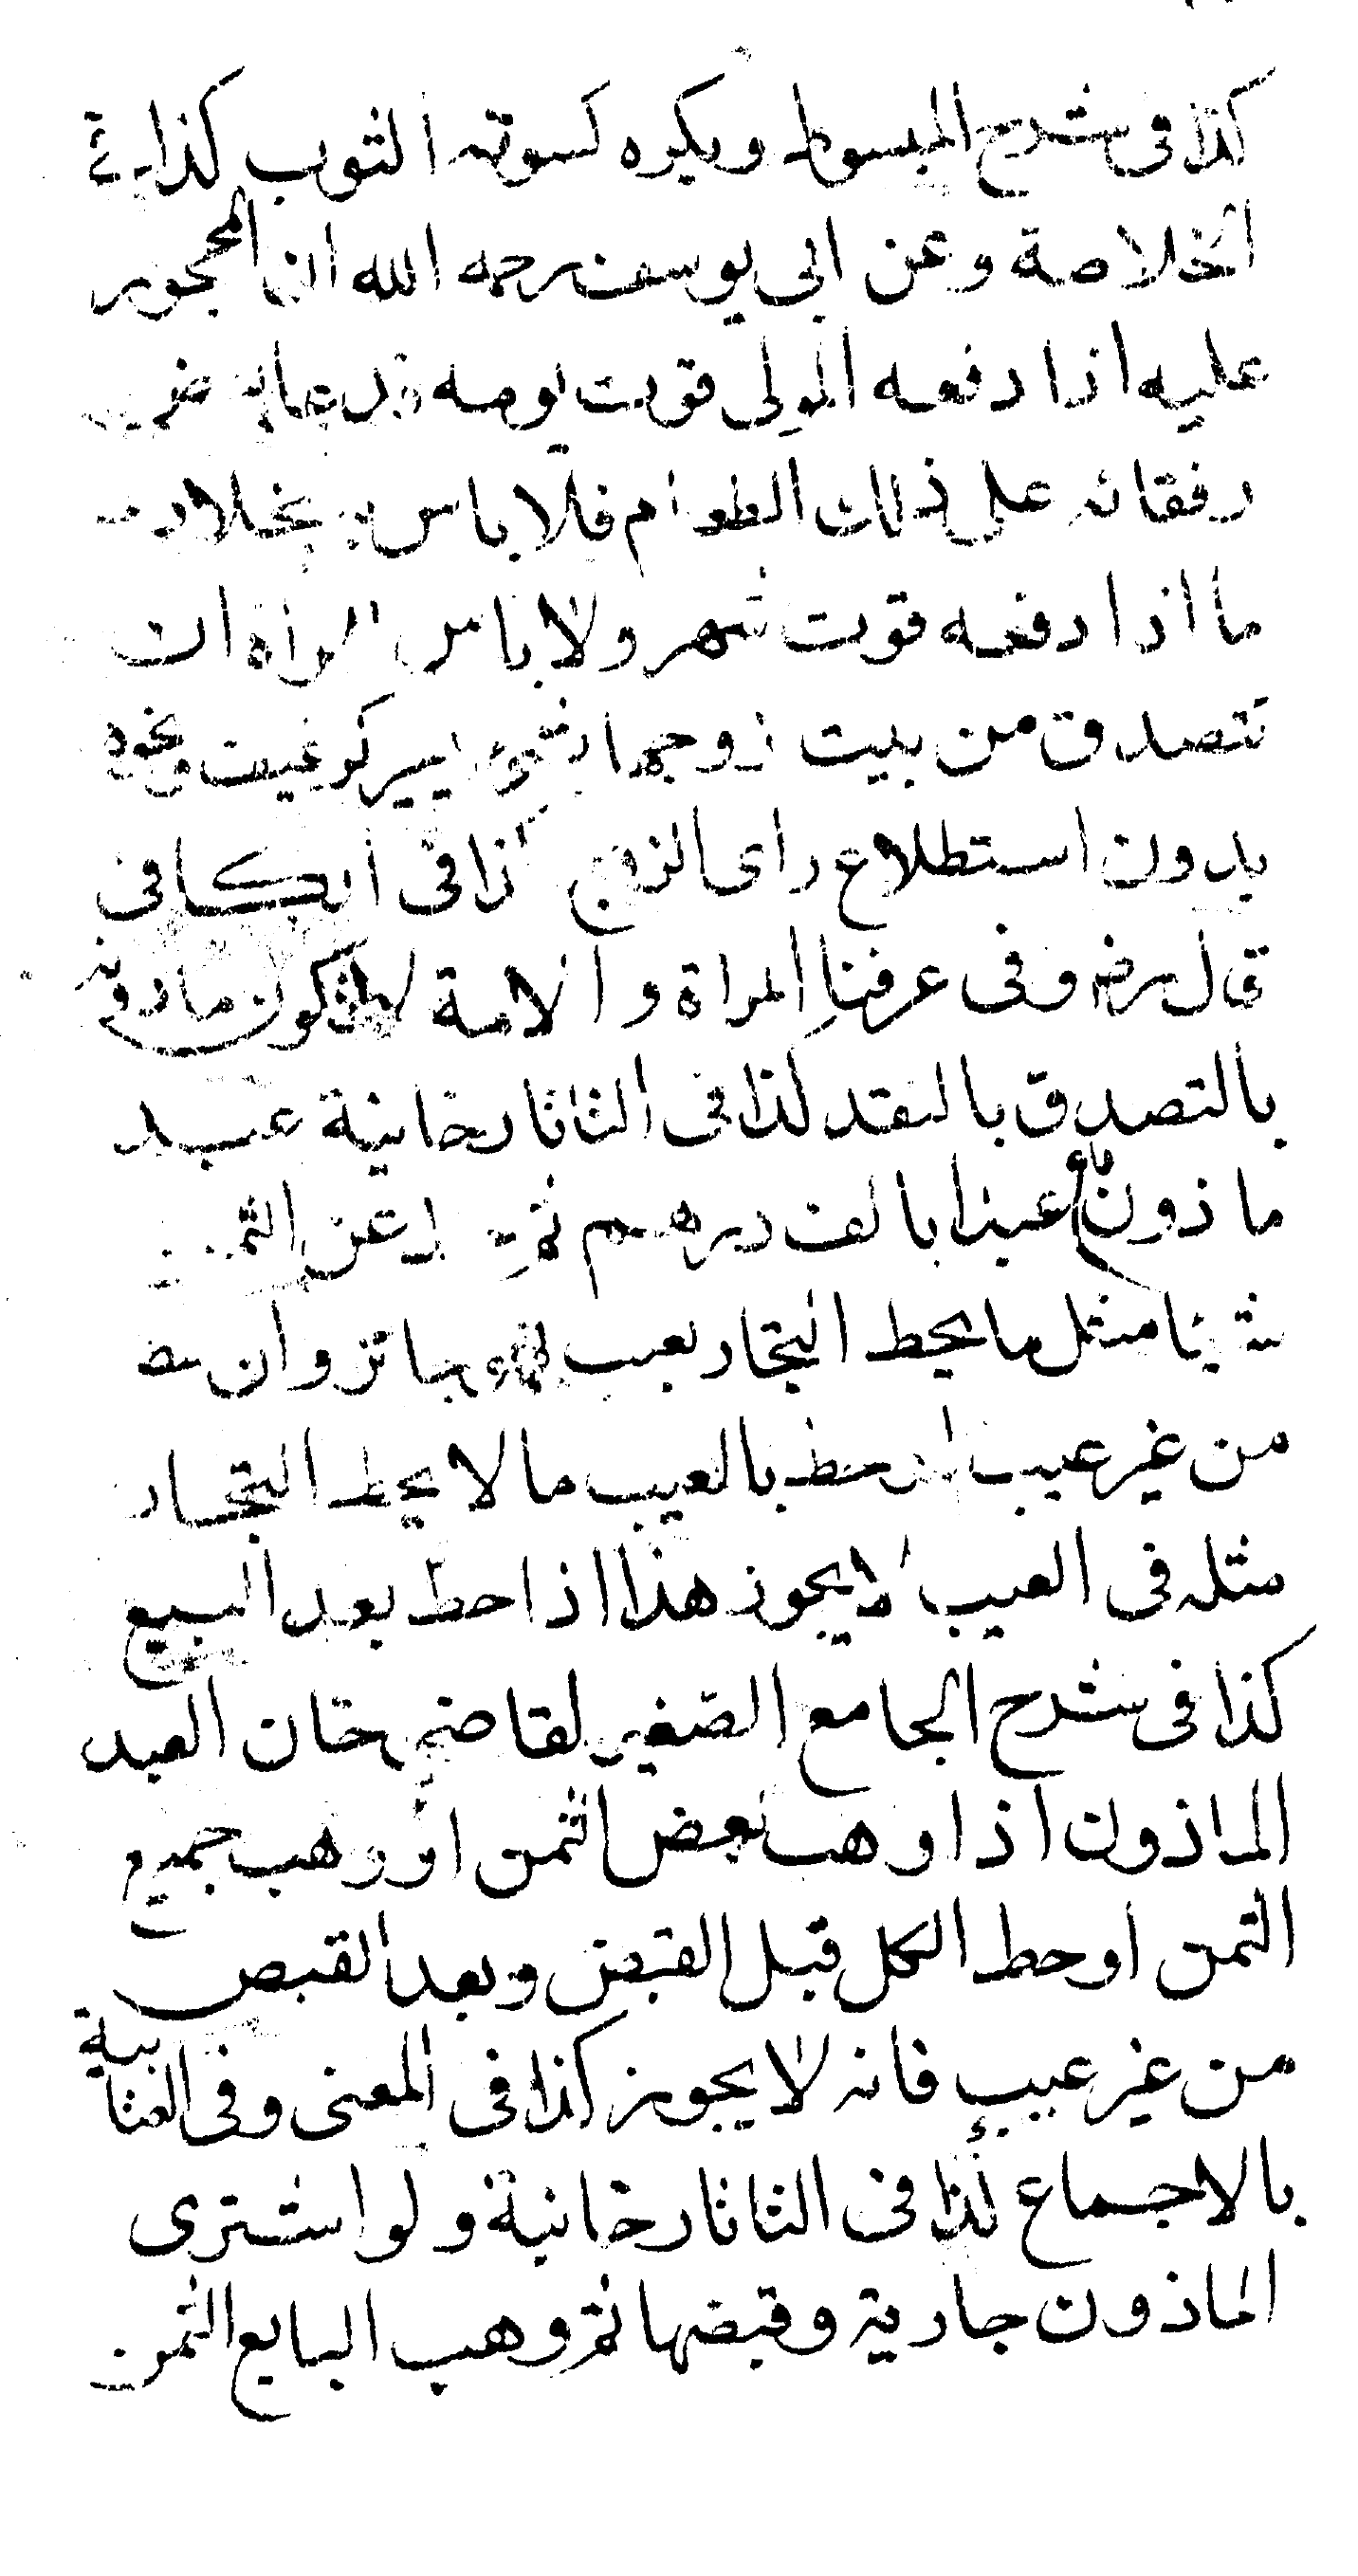 كذا فى شرح المبسوط ويكره كسوته الثوب كذا فى
الخلاصة وعن ابى يوسف رحمه الله ان المحجور
عليه اذا دفعه المولى قوت يومه فدعا بعض
رفقائه على ذلك الطعام فلا باس به بخلاف
ما اذا دفعه قوت شهر ولا باس للمراة ان
تتصدق من بيت زوجها بشئ يسير كرغيف ونحوه
بدون استطلاع راى الزوج كذا فى الكافى
قال رضه وفى عرفنا المراة والامة لا تكون ماذونة
بالتصدق بالنقد كذا فى التاتارخانية عبد
ماذون باع عبدا بالف درهم ثم عن الثمن
شيئا مثل ما يحط التجار بعيب فهو جائز وان حط
من غير عيب او حط بالعيب ما لا يحط التجار
مثله فى العيب لا يجوز هذا اذا حط بعد البيع
كذا فى شرح الجامع الصغير لقاضى خان العبد
الماذون اذا وهب بعض الثمن او وهب جميع
الثمن او حط الكل قبل القبض وبعد القبض
من غير عيب فانه لا يجوز كذا فى المغنى وفى العتابية
بالاجماع كذا فى التاتارخانية ولو اشترى
الماذون جارية وقبضها ثم وهب البايع الثمن